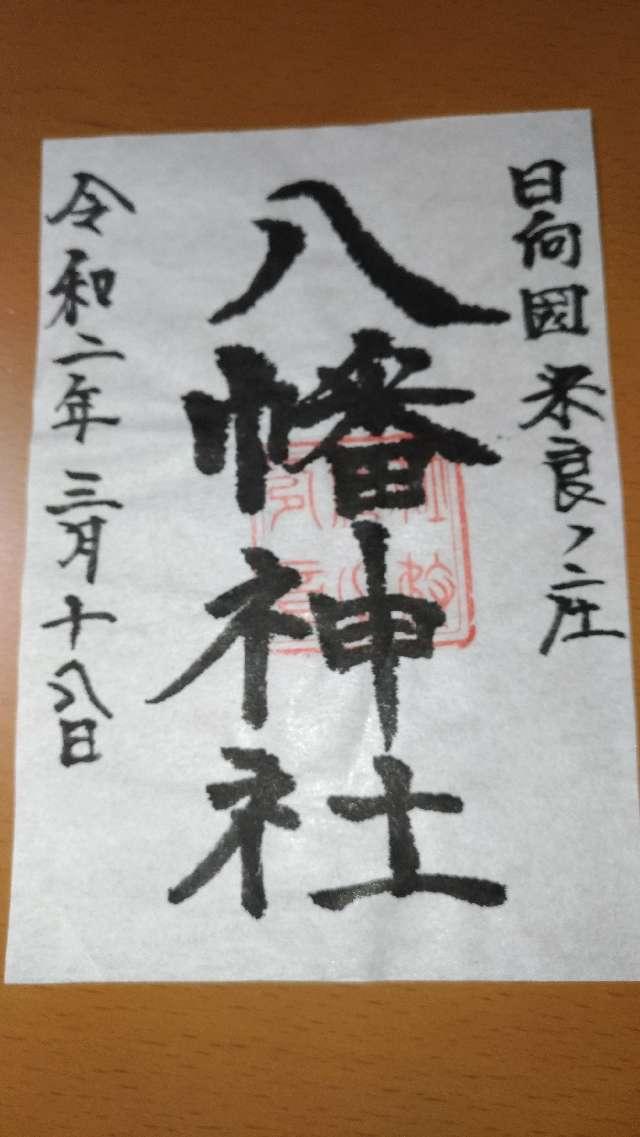 日向国米良ノ庄
八幡神社
令和二年三月十八日